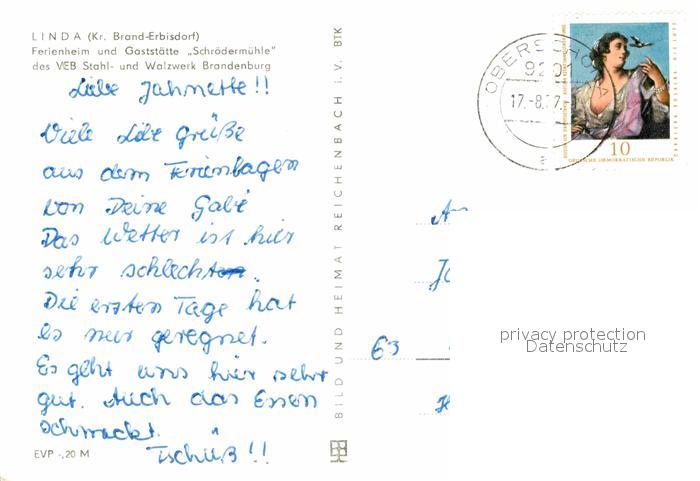 LINDA (Kr. Brand-Erbisdorf)
Ferienheim und Gaststätte „Schrödermühle"
des VEB Stahl- und Walzwerk Brandenburg
Liebe Jahnette!!
Viele liebe Grüße
aus dem Ferienlager
von Deine Gabi
Das Wetter ist hier
sehr schlecht.
Die ersten Tage hat
es nur geregnet.
Es geht uns hier sehr
gut. Auch das Essen
schmeckt.
Tschüß!!
EVP -,20 M
BILD UND HEIMAT REICHENBACH i. V. BTK
OBERSCHÖ
920
17.-8.77.
a
10
DEUTSCHE DEMOKRATISCHE REPUBLIK
63
privacy protection
Datenschutz